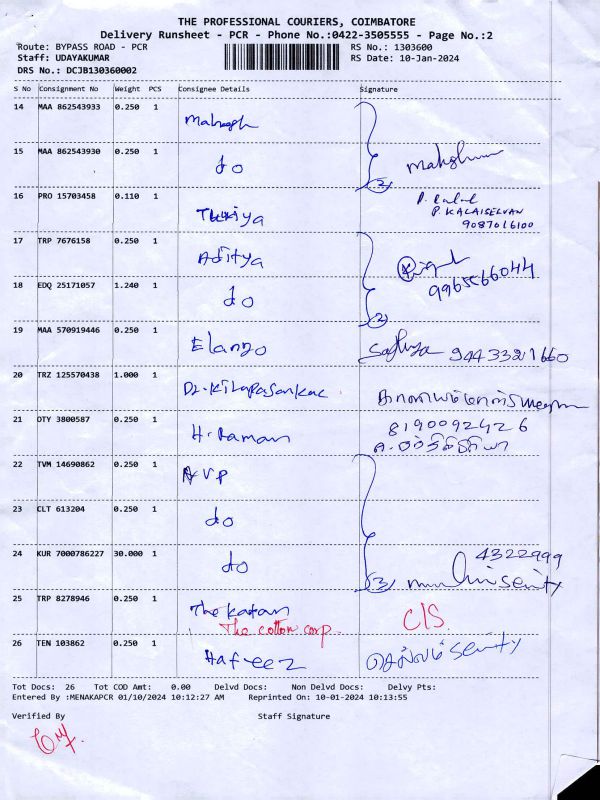 THE PROFESSIONAL COURIERS, COIMBATORE
Delivery Runsheet - PCR - Phone No.:0422-3505555 - Page No.:2
Route: BYPASS ROAD - PCR
RS No.: 1303600
Staff: UDAYAKUMAR
RS Date: 10-Jan-2024
DRS No.: DCJB130360002
S No Consignment No Weight PCS Consignee Details Signature
14 MAA 862543933 0.250 1
15 MAA 862543930 0.250 1 do
2
16 PRO 15703458 0.110 1
P. KALAISELVAN
9087016100
17 TRP 7676158 0.250 1 Aditya
9965566044
18 EDQ 25171057 1.240 1 do
2
19 MAA 570919446 0.250 1 Elango 9443321660
20 TRZ 125570438 1.000 1
21 OTY 3800587 0.250 1 H. Raman 8190092426
22 TVM 14690862 0.250 1 AVP
23 CLT 613204 0.250 1 do
24 KUR 7000786227 30.000 1 do 4322999
3
25 TRP 8278946 0.250 1 The Katan C/S.
The cotton corp.
26 TEN 103862 0.250 1 Hafeez
Tot Docs: 26 Tot COD Amt: 0.00 Delvd Docs: Non Delvd Docs: Delvy Pts:
Entered By :MENAKAPCR 01/10/2024 10:12:27 AM Reprinted On: 10-01-2024 10:13:55
Verified By Staff Signature